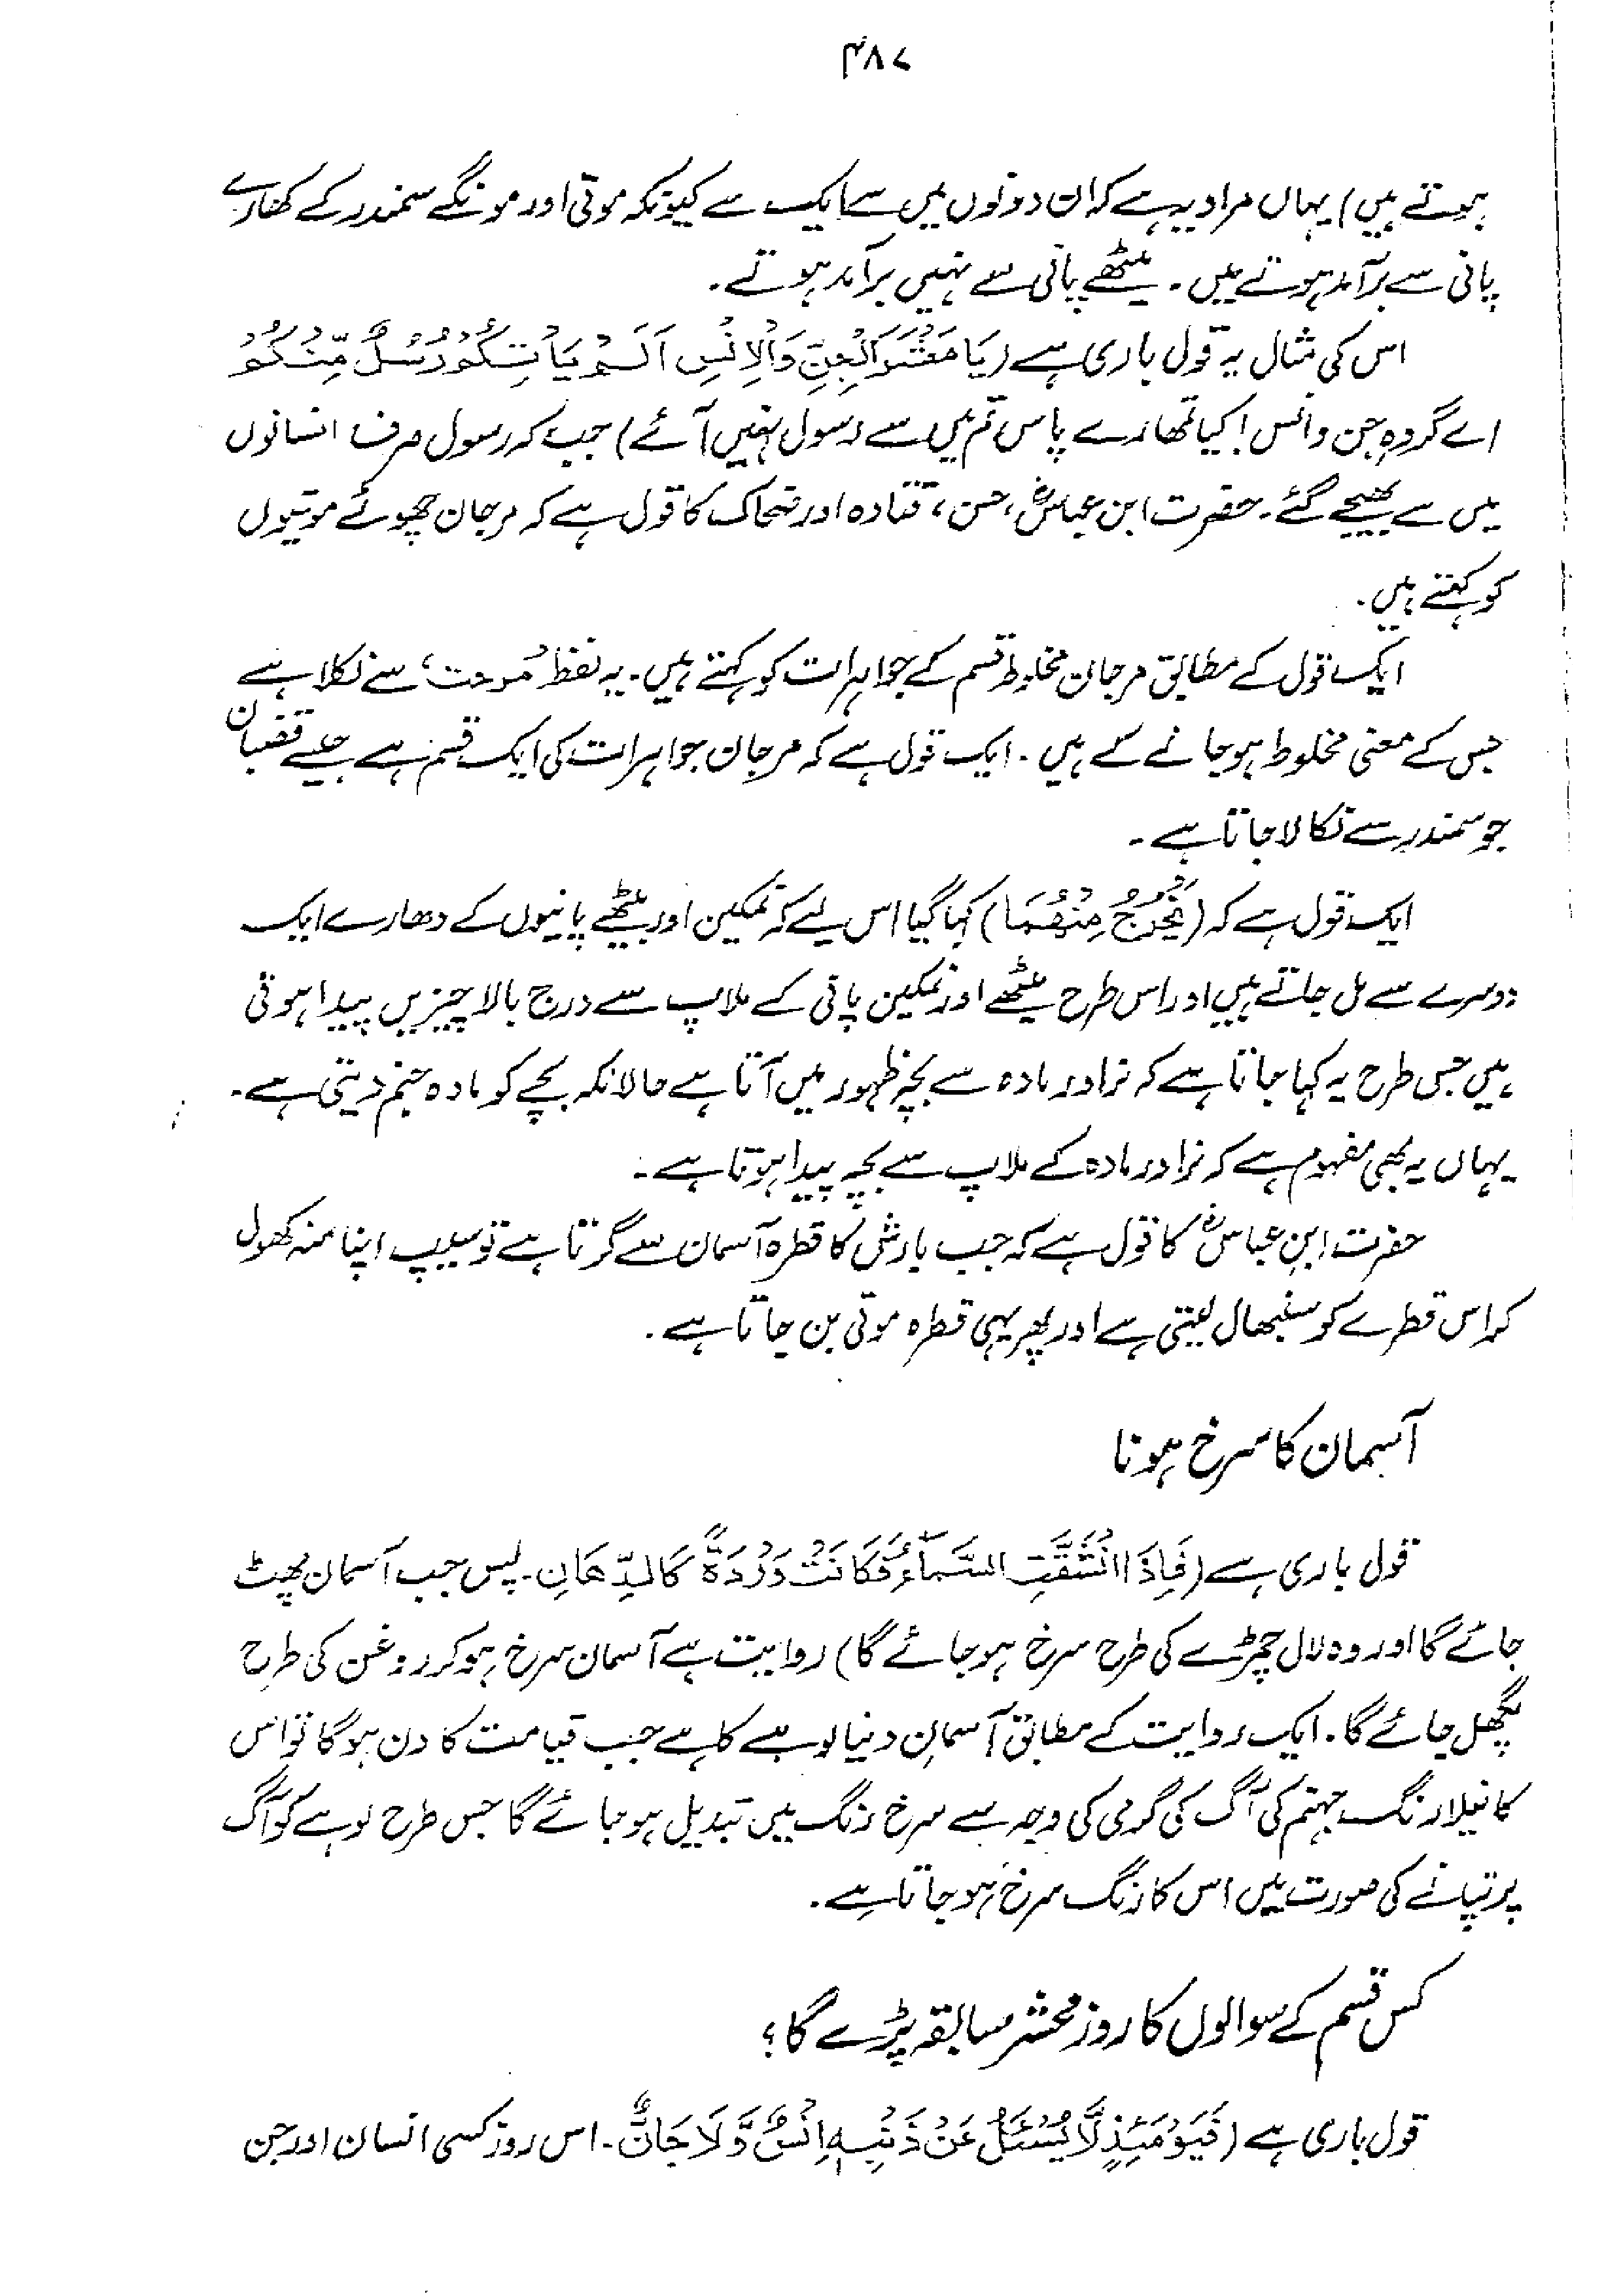 ۴۸۷
ہوتے ہیں) یہاں مراد یہ ہے کہ ان دونوں میں سے ایک سے کیونکہ موتی اور مونگے سمندر کے کھارے
پانی سے برآمد ہوتے ہیں۔ میٹھے پانی سے نہیں برآمد ہوتے۔
اس کی مثال یہ قول باری ہے (يَا مَعْشَرَ الْجِنِّ وَالْاِنْسِ اَلَمْ يَأْتِكُمْ رُسُلٌ مِّنْكُمْ
اے گروہِ جن وانس! کیا تمھارے پاس تم میں سے رسول نہیں آئے) جب کہ رسول صرف انسانوں
میں سے بھیجے گئے۔ حضرت ابن عباسؓ، حسن، قتادہ اور ضحاک کا قول ہے کہ مرجان چھوٹے موتیوں
کو کہتے ہیں۔
ایک قول کے مطابق مرجان مخلوط قسم کے جواہرات کو کہتے ہیں۔ یہ لفظ ’مُوجت‘ سے نکلا ہے
جس کے معنی مخلوط ہو جانے کے ہیں۔ ایک قول ہے کہ مرجان جواہرات کی ایک قسم ہے جیسے قضبان
جو سمندر سے نکالا جاتا ہے۔
ایک قول ہے کہ (يَخْرُجُ مِنْهُمَا) کہا گیا اس لیے کہ نمکین اور میٹھے پانیوں کے دھارے ایک
دوسرے سے مل جاتے ہیں اور اس طرح میٹھے اور نمکین پانی کے ملاپ سے درج بالا چیزیں پیدا ہوتی
ہیں جس طرح یہ کہا جاتا ہے کہ نر اور مادہ سے بچہ ظہور میں آتا ہے حالانکہ بچے کو مادہ جنم دیتی ہے۔
یہاں یہ بھی مفہوم ہے کہ نر اور مادہ کے ملاپ سے بچہ پیدا ہوتا ہے۔
حضرت ابن عباسؓ کا قول ہے کہ جب بارش کا قطرہ آسمان سے گرتا ہے تو سیپ اپنا منہ کھول
کر اس قطرے کو سنبھال لیتی ہے اور پھر یہی قطرہ موتی بن جاتا ہے۔
آسمان کا سرخ ہونا
قول باری ہے (فَاِذَا انْشَقَّتِ السَّمَآءُ فَكَانَتْ وَرْدَةً كَالدِّهَانِ۔ پس جب آسمان پھٹ
جائے گا اور وہ لال چمڑے کی طرح سرخ ہو جائے گا) روایت ہے آسمان سرخ ہو کر روغن کی طرح
پگھل جائے گا۔ ایک روایت کے مطابق آسمانِ دنیا لوہے کا ہے جب قیامت کا دن ہوگا تو اس
کا نیلا رنگ جہنم کی آگ کی گرمی کی وجہ سے سرخ رنگ میں تبدیل ہو جائے گا جس طرح لوہے کو آگ
پر تپانے کی صورت میں اس کا رنگ سرخ ہو جاتا ہے۔
کس قسم کے سوالوں کا روز محشر سابقہ پڑے گا؟
قول باری ہے (فَيَوْمَئِذٍ لَّا يُسْئَلُ عَنْ ذَنْبِهٖ اِنْسٌ وَّلَا جَانٌّ۔ اس روز کسی انسان اور جن